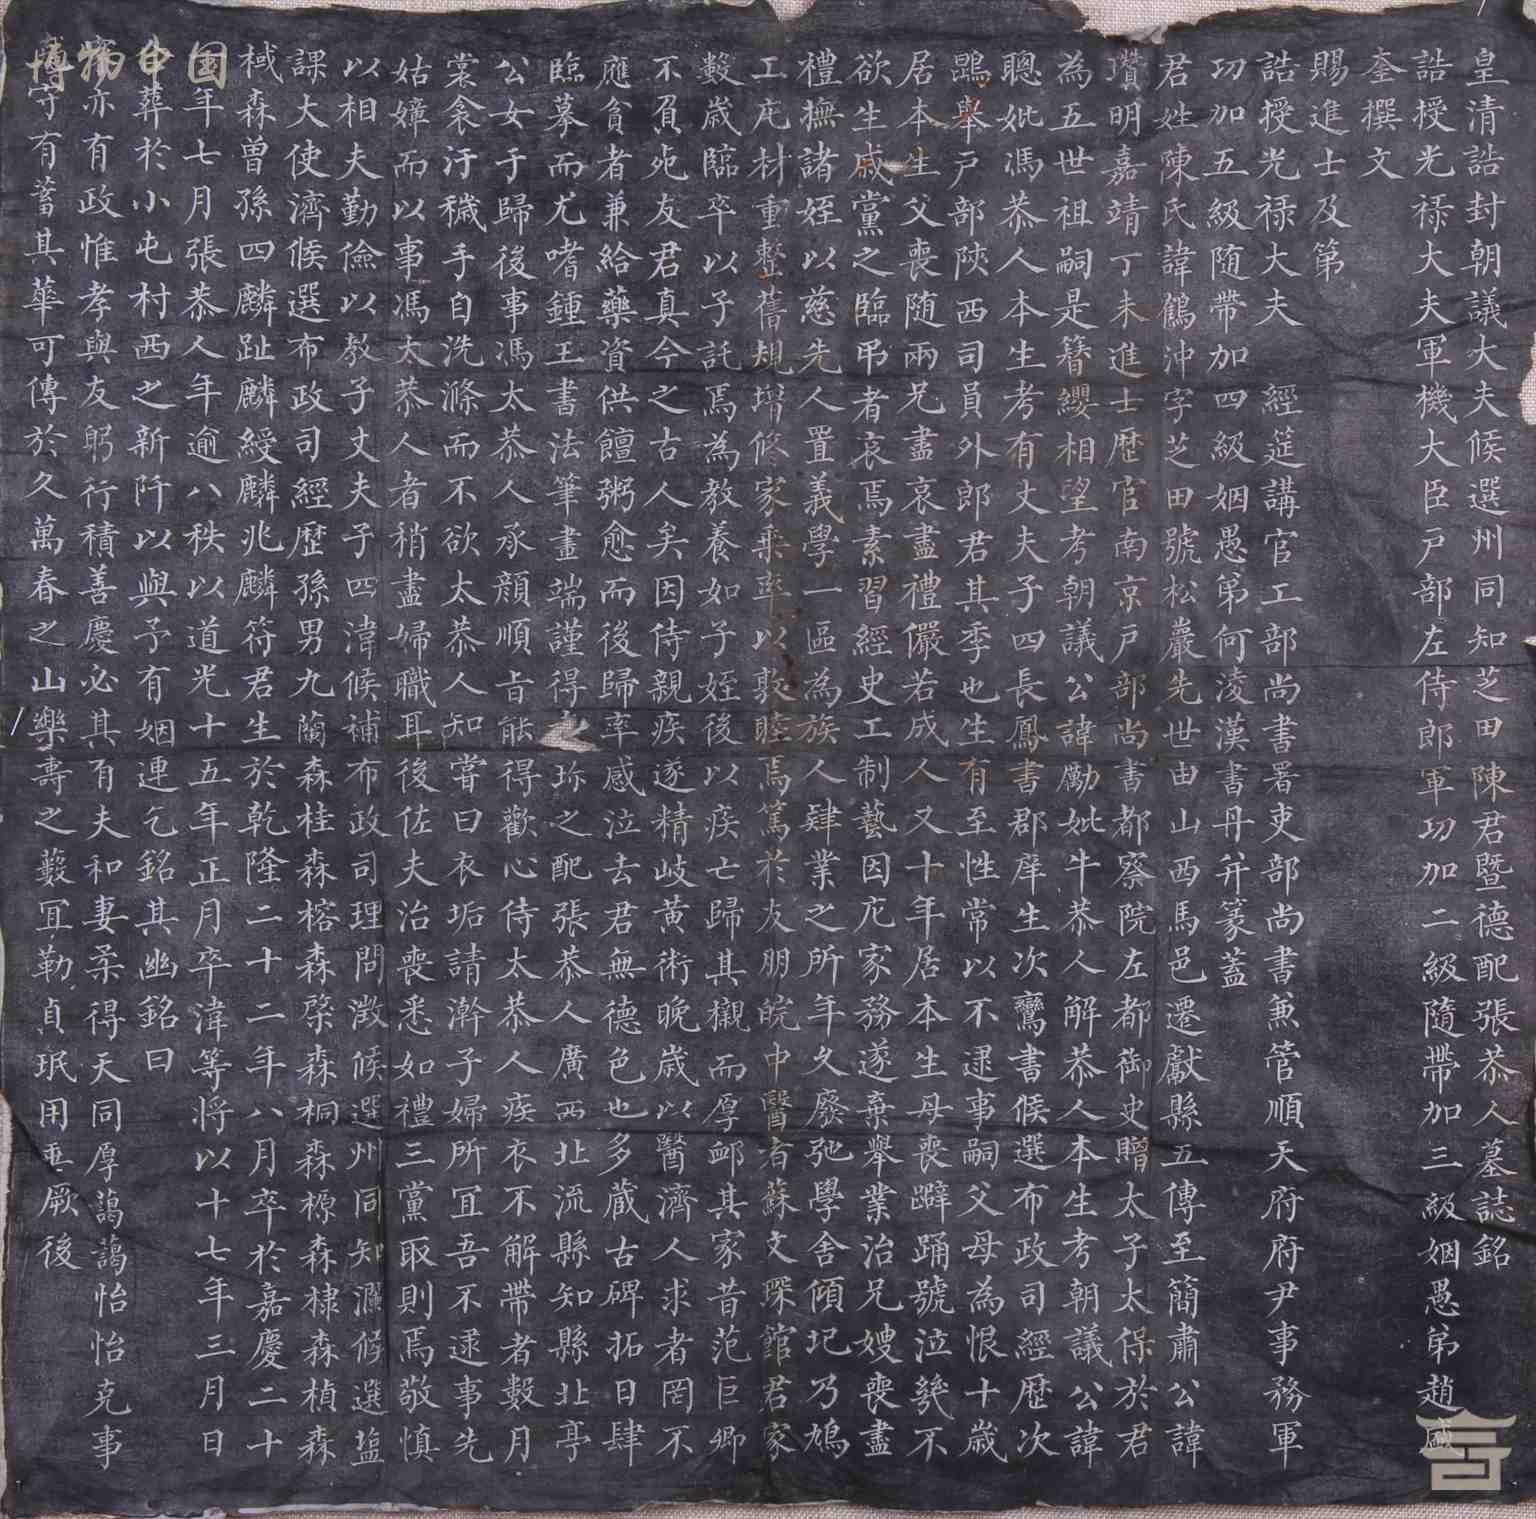 皇清誥封朝議大夫候選州同知芝田陳君暨德配張恭人墓誌銘
誥授光祿大夫軍機大臣戶部左侍郎軍功加二級隨帶加三級姻愚弟趙盛
奎撰文
賜進士及第
誥授光祿大夫 經筵講官工部尚書署吏部尚書兼管順天府府尹事務軍
功加五級随帶加四級姻愚弟何淩漢書丹并篆蓋
君姓陳氏諱鶴沖字芝田號松巖先世由山西馬邑遷獻縣五傳至簡肅公諱
瓚明嘉靖丁未進士歷官南京戶部尚書都察院左都御史贈太子太保於君
為五世祖嗣是簪纓相望考朝議公諱勵妣牛恭人解恭人本生考朝議公諱
聰妣馮恭人本生考有丈夫子四長鳳書郡庠生次鸞書候選布政司經歷次
鵾舉戶部陝西司員外郎君其季也生有至性常以不逮事嗣父母為恨十歲
居本生父喪随兩兄盡哀盡禮儼若成人又十年居本生母喪躃踊號泣幾不
欲生戚黨之臨弔者哀焉素習經史工制藝因庀家務遂棄舉業治兄嫂喪盡
禮撫諸姪以慈先人置義學一區為族人肆業之所年久廢弛學舍傾圮乃鳩
工庀材重整舊規增修家乘率以敦睦焉篤於友朋皖中醫者蘇文琛館君家
數歲臨卒以子託焉為教養如子姪後以疾亡歸其櫬而厚卹其家昔范巨卿
不負死友君真今之古人矣因侍親疾遂精岐黃術晚歲以醫濟人求者罔不
應貧者兼給藥資供饘粥愈而後歸率感泣去君無德色也多蔵古碑拓日肆
臨摹而尤嗜鍾王書法筆畫端謹得 㧊之配張恭人廣西北流縣知縣北亭
公女于歸後事馮太恭人承顏順旨能得歡心侍太恭人疾衣不解帶者數月
裳衾汙穢手自洗滌而不欲太恭人知嘗曰衣垢請澣子婦所宜吾不逮事先
姑嫜而以事馮太恭人者稍盡婦職耳後佐夫治喪悉如禮三黨取則焉敬慎
以相夫勤儉以教子丈夫子四湋候補布政司理問澂候選州同知瀾候選塩
課大使濟候選布政司經歷孫男九蘭森桂森榕森棨森桐森榞森棣森楨森
棫森曾孫四麟趾麟綬麟兆麟符君生於乾隆二十二年八月卒於嘉慶二十
年七月張恭人年逾八秩以道光十五年正月卒湋等将以十七年三月日
葬於小屯村西之新阡以與予有姻連乞銘其幽銘曰
亦有政惟孝與友躬行積善慶必其有夫和妻柔得天同厚藹藹怡怡克事
守有蓄其華可傳於久萬春之山樂壽之藪宜勒貞珉用垂厥後
博物中国